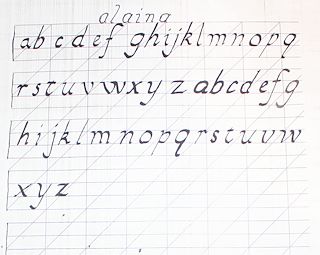 alaina
ab c d ef ghijklmnopq
rstuvwxy z abcdefg
hijklmnopqrstuvw
xyz